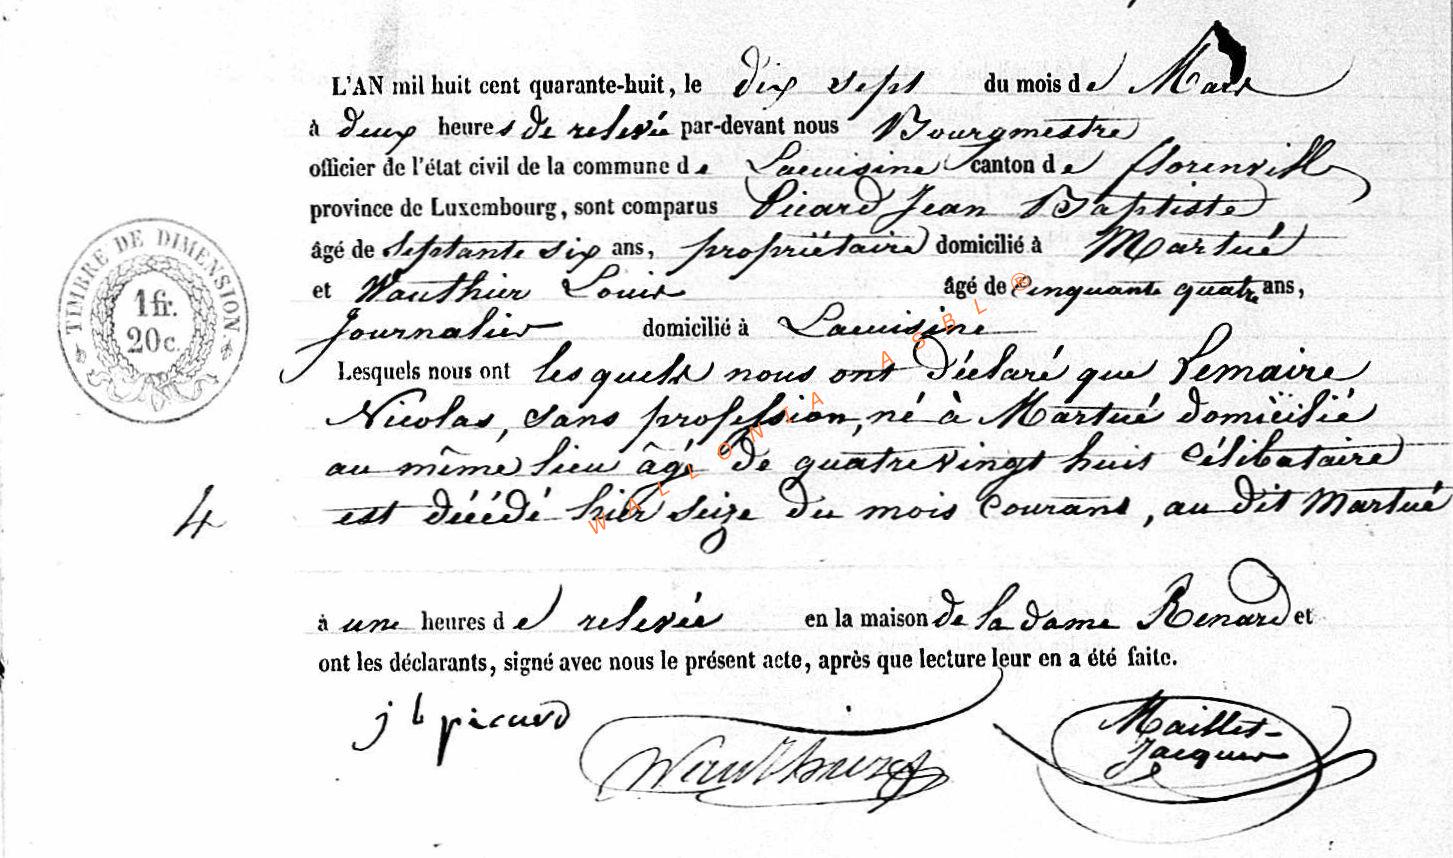 L'AN mil huit cent quarante-huit, le dix sept du mois de Mars
à deux heures de relevée par-devant nous Bourgmestre
officier de l'état civil de la commune de Lacuisine canton de florenville
province de Luxembourg, sont comparus Picard Jean Baptiste
âgé de septante six ans, propriétaire domicilié à Martué
et Wauthier Louis âgé de cinquante quatre ans,
Journalier domicilié à Lacuisine
Lesquels nous ont les quels nous ont déclaré que Lemaire
Nicolas, sans profession, né à Martué domicilié
au même lieu âgé de quatrevingt huit célibataire
est décédé hier seize du mois courant, au dit Martué
4
à une heures de relevée en la maison de la dame Renard et
ont les déclarants, signé avec nous le présent acte, après que lecture leur en a été faite.
j b picard
Wauthier
Maillet
Jacques
TIMBRE DE DIMENSION
1 fr.
20 c.
WALLONIA ASBL ®